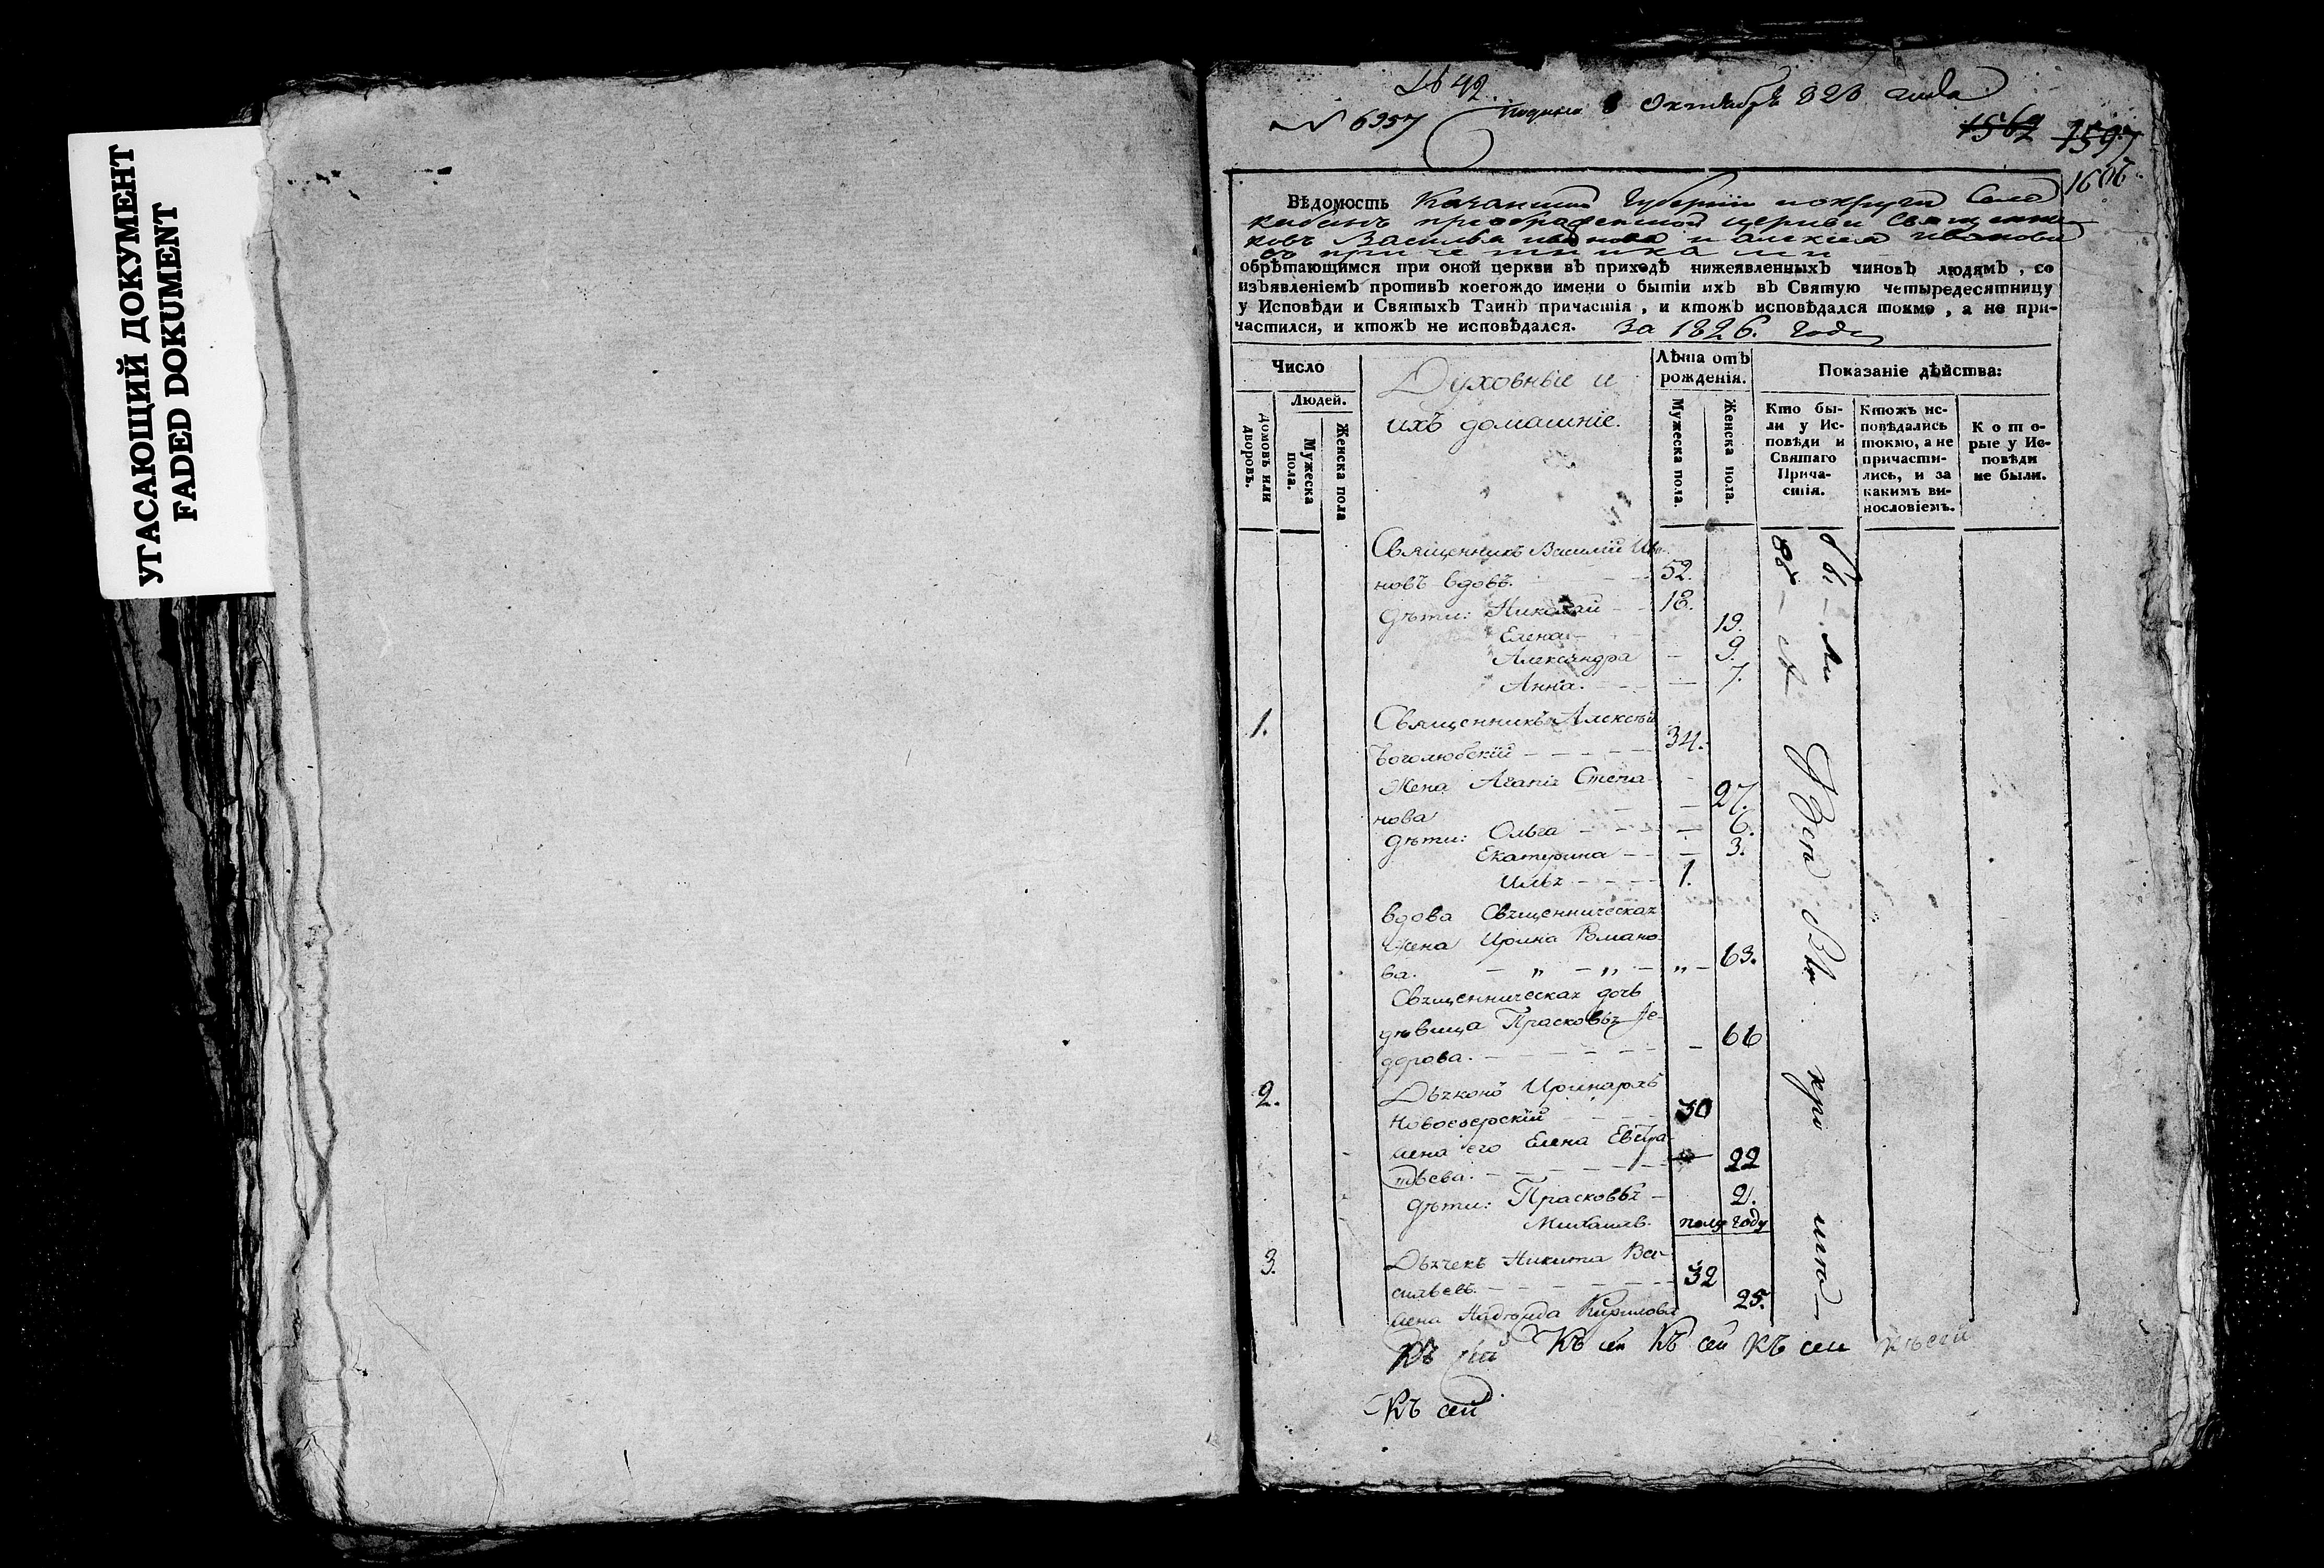 УГАСАЮЩИЙ ДОКУМЕНТ
FADED DOKUMENT
№ 42.
№ 6957
8 Октября 826 года
1567 1597
1606
Вѣдомость Казанской Губернiи округи Села
преображенской церкви Священни-
ковъ Василья Иванова и Алексея Иванова
съ причетниками
обрѣтающимся при оной церкви въ приходѣ нижеявленныхъ чиновъ людямъ, со
изъявленiемъ противъ коегождо имени о бытiи ихъ въ Святую четыредесятницу
у Исповѣди и Святыхъ Таинъ причастiя, и ктожъ исповѣдался токмо, а не при-
частился, и ктожъ не исповѣдался. За 1826. Годъ
Число
Людей.
домовъ или дворовъ.
Мужеска пола.
Женска пола
Духовныіе и
ихъ домашніе.
Лѣта отъ
рожденiя.
Мужеска пола.
Женска пола.
Показанiе дѣйства:
Кто бы-
ли у Ис-
повѣди и
Святаго
Прича-
стiя.
Ктожъ ис-
повѣдались
токмо, а не
причасти-
лись, и за
какимъ ви-
нословiемъ.
Кото-
рые у Ис-
повѣди
не были.
Священникъ Василiй Ива-
новъ вдовъ. 52.
дѣти: Николай 18.
Елена 19.
Александра 9.
Анна. 7.
1. Священникъ Алексѣй
Боголюбскiй 34.
Жена Агапiя Степа-
нова 27.
дѣти: Ольга 6.
Екатерина 3.
Илья 1.
вдова Священническая
жена Ирина Романо-
ва. 63.
Священническая дочь
дѣвица Прасковья Ѳе-
дорова. 66
2. Дьяконъ Иринархъ
Новоезерскiй 30
жена его Елена Евстра-
тьева. 22
дѣти: Прасковья 2.
Михаилъ. полугоду
3. Дьячекъ Никита Ва-
сильевъ. 32
жена Надежда Кирилова 25.
Къ сей Къ сей Къ сей Къ сей Къ сей
Къ сей